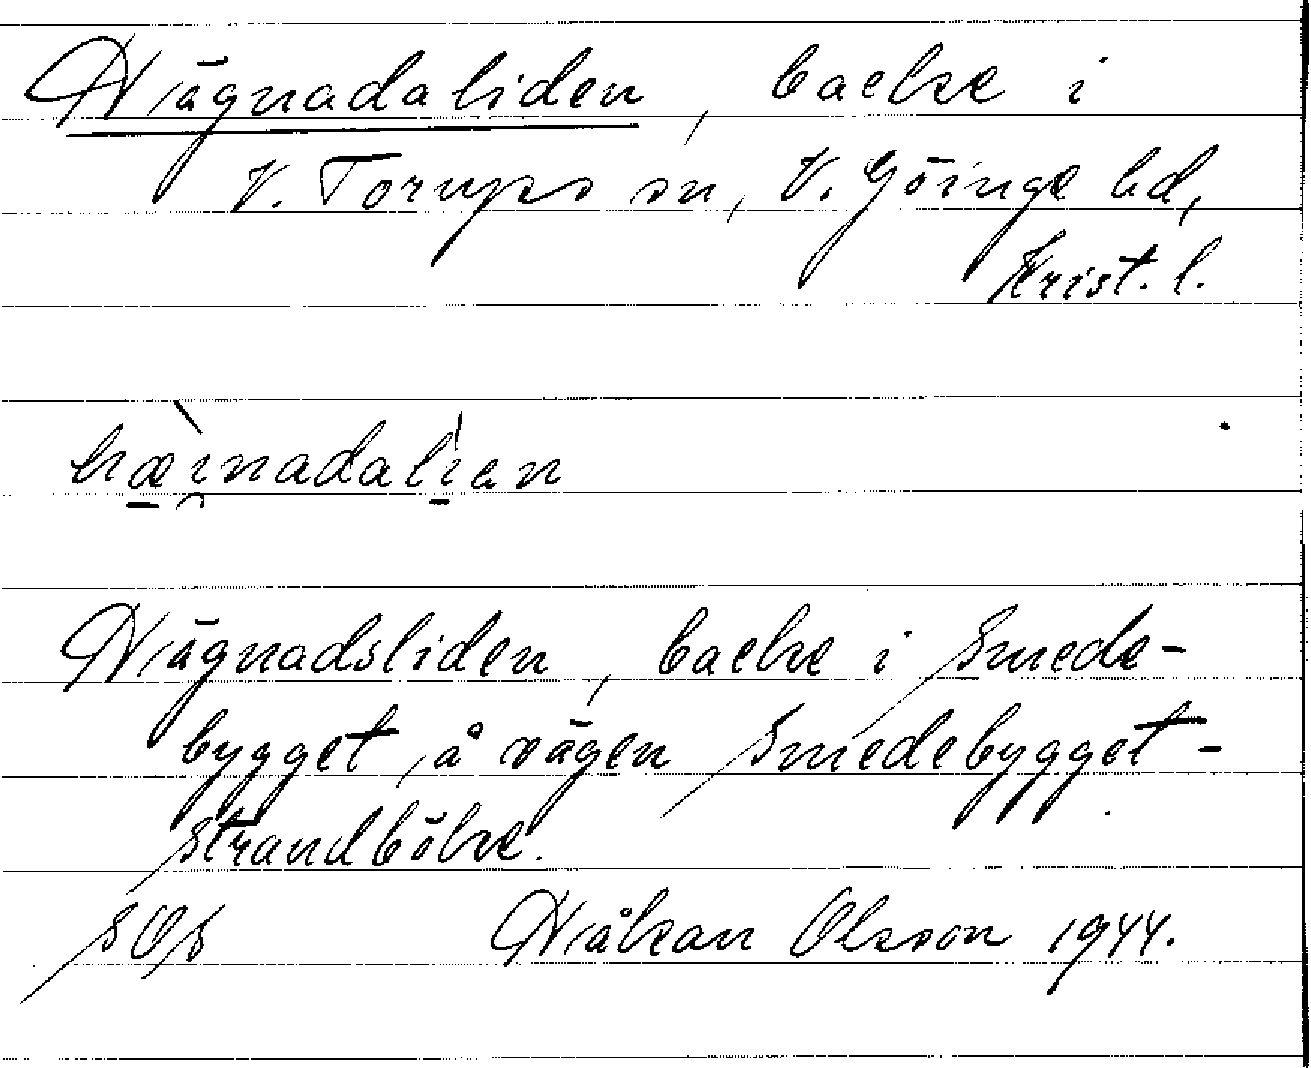 Hägnadaliden, backe i
V. Torups sn, V. Göinge hd,
Krist. l.
hæ̀i̯nadalien
Hägnadsliden, backe i Smede-
bygget, å vägen Smedebygget-
Strandböke.
SOS Håkan Olsson 1944.